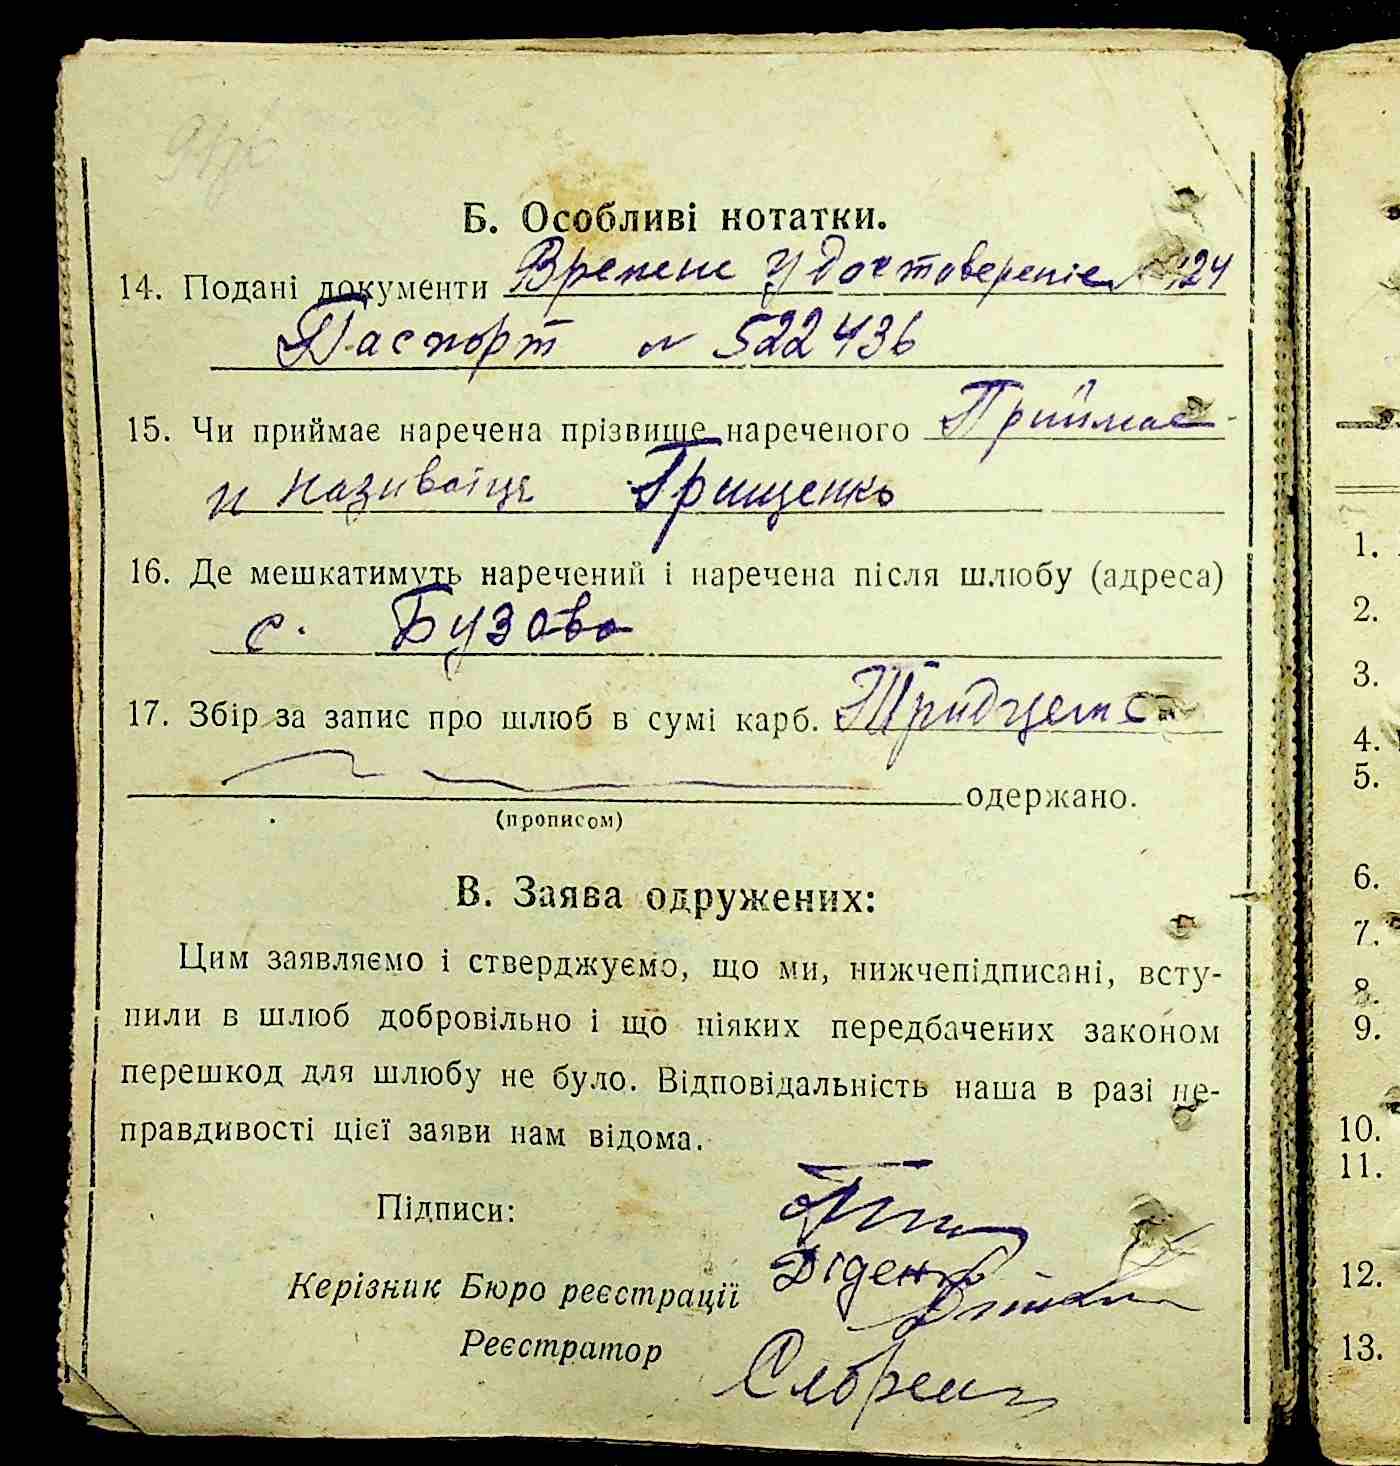 Б. Особливі нотатки.
14. Подані документи Времене удостовереніе № 124
Паспорт N 522436
15. Чи приймає наречена прізвище нареченого Приймає
и називаіця Грищенко
16. Де мешкатимуть наречений і наречена після шлюбу (адреса)
с. Бузова
17. Збір за запис про шлюб в сумі карб. Тридцет
одержано.
(прописом)
В. Заява одружених:
Цим заявляємо і стверджуємо, що ми, нижчепідписані, всту-
пили в шлюб добровільно і що ніяких передбачених законом
перешкод для шлюбу не було. Відповідальність наша в разі не-
правдивості цієї заяви нам відома.
Підписи:
Діденко
Керізник Бюро реєстрації
Реєстратор
1.
2.
3.
4.
5.
6.
7.
8.
9.
10.
11.
12.
13.